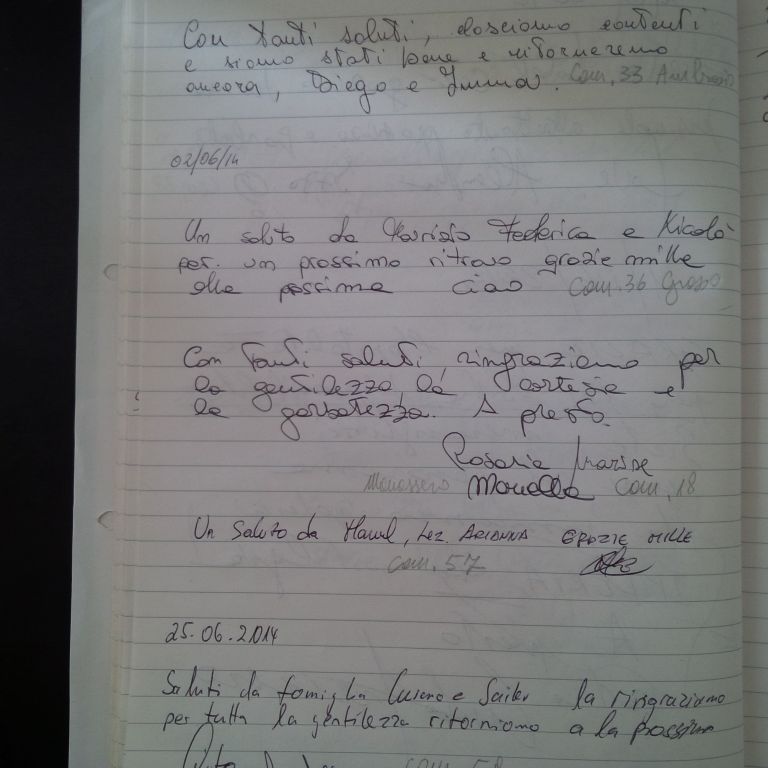 Con tanti saluti, lasciamo contenti
e siamo stati bene e ritorneremo
ancora, Diego e Imma. Cam. 33 Ambrosio
02/06/14
Un saluto da Maurizio Federica e Nicolò
per un prossimo ritrovo grazie mille
alla prossima ciao Cam. 36 Grosso
Con tanti saluti, ringraziamo per
la gentilezza, la cortesia e
la garbatezza. A presto.
Rosaria
Cam. 18
Un saluto da ARIANNA GRAZIE MILLE
Cam. 57
25.06.2014
Saluti da famiglia e la ringraziamo
per tutta la gentilezza ritorniamo a la prossima